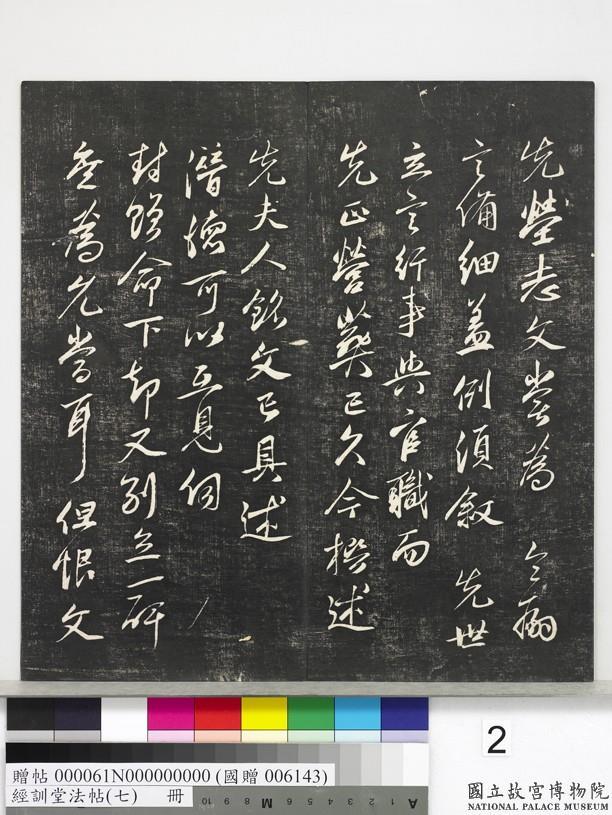 先塋志文嘗為 令嗣
言備細蓋例須敘 先世
立言行事與官職而
先正營葬已久今撰述
先夫人銘文已具述
潛德可以互見伺
封贈命下却又别立一碑
為允當耳但恨文
2
贈帖 000061N000000000 (國贈 006143)
經訓堂法帖(七) 冊
10 9 8 7 6 M 5 4 3 2 1 A
國立故宮博物院
NATIONAL PALACE MUSEUM